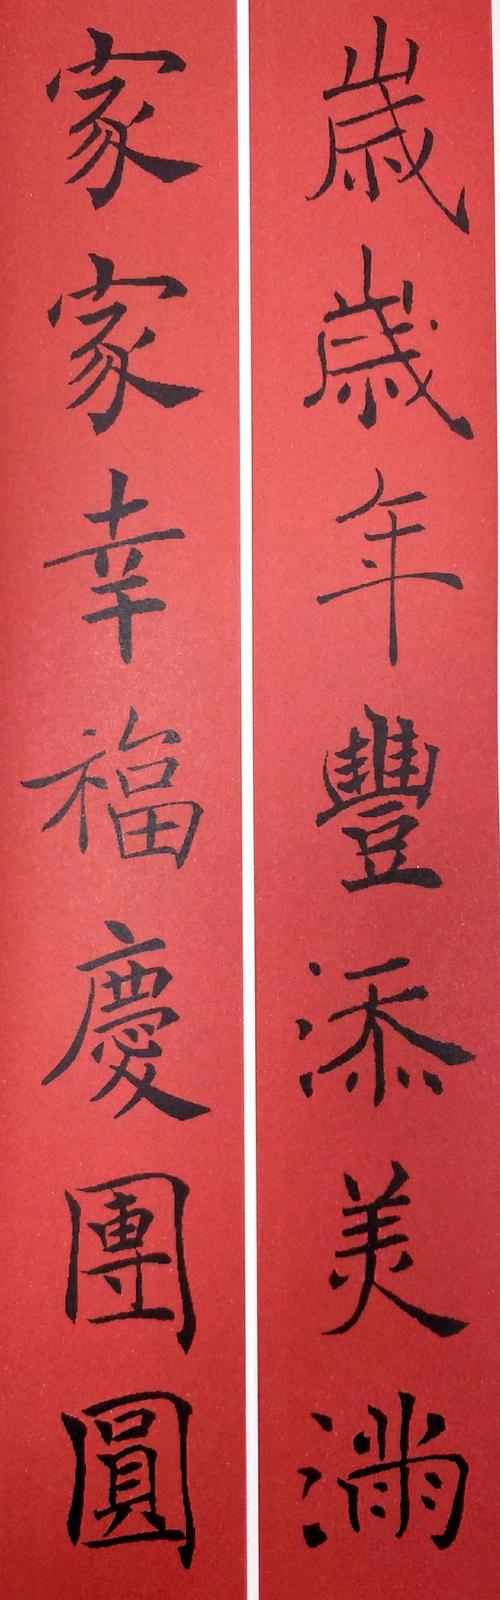 歲歲年豐添美滿
家家幸福慶團圓